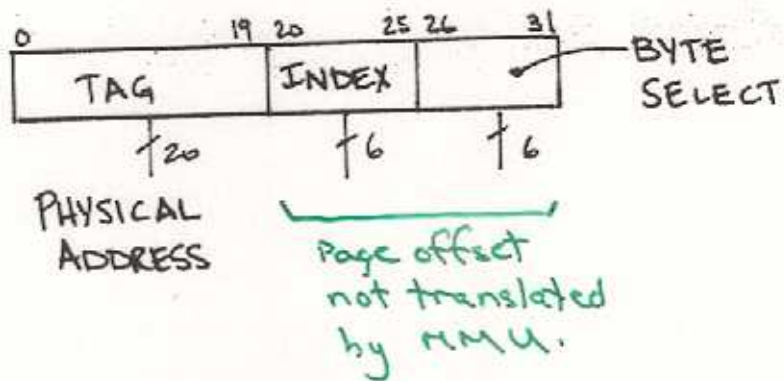 0 19 20 25 26 31
TAG INDEX BYTE
SELECT
20 6 6
PHYSICAL
ADDRESS
Page offset
not translated
by MMU.